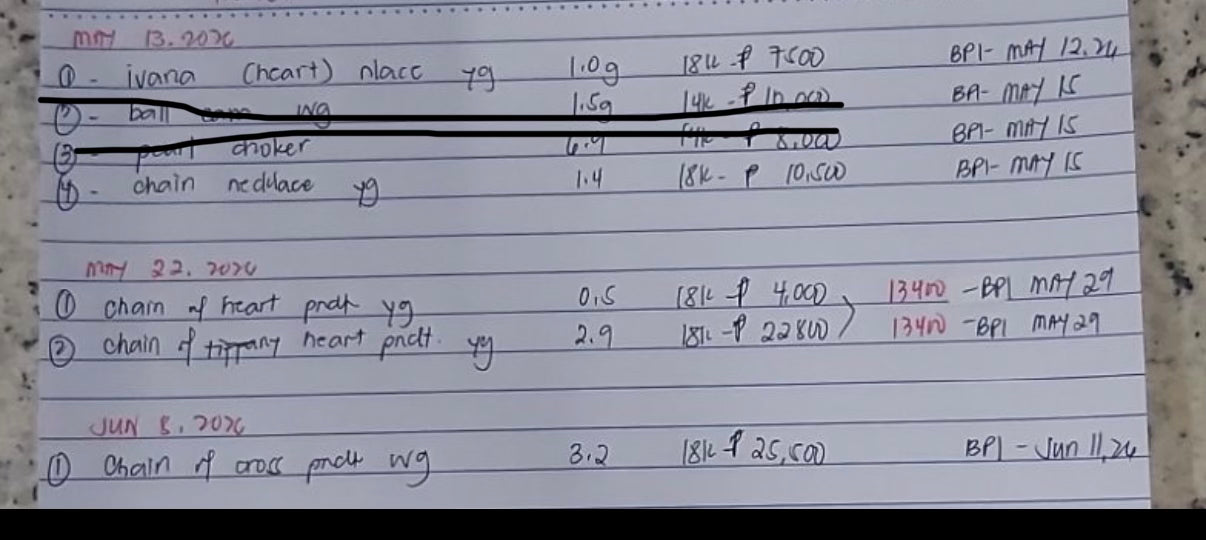 MAY 13. 2026
① - ivana (heart) nlace yg 1.0g 18k - ₱ 7500 BPI- MAY 12.26
② - ball wg 1.5g 14k - ₱ 10,000 BPI- MAY 15
③ - pearl choker 6.9 14k - ₱ 8,000 BPI- MAY 15
④ - chain necklace yg 1.4 18k - ₱ 10,500 BPI- MAY 15
MAY 22. 2026
① chain w/ heart pndt yg 0.5 18k - ₱ 4,000 13400 - BPI MAY 29
② chain w/ tiffany heart pndt. yg 2.9 18k - ₱ 22800 13400 - BPI MAY 29
JUN 8. 2026
① Chain w/ cross pndt wg 3.2 18k ₱ 25,500 BPI - Jun 11, 26